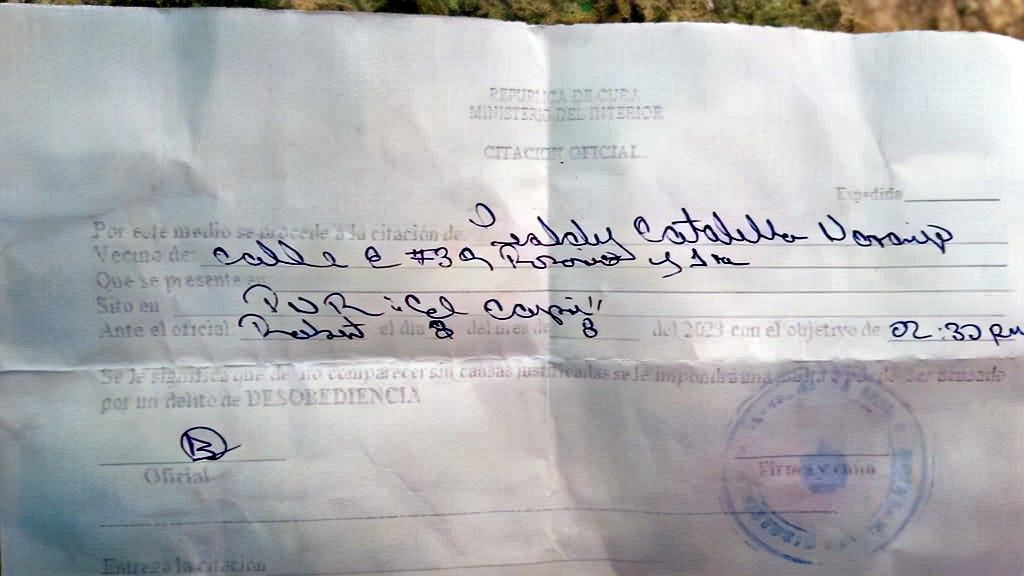 REPUBLICA DE CUBA
MINISTERIO DEL INTERIOR
CITACION OFICIAL
Expedida
Por este medio se procede a la citación de
Vecino de: calle e #39 y 1ra
Que se presente
Sito en PNR
Ante el oficial: Robert el día 8 del mes de 8 del 2023 con el objetivo de 02:30 pm
Se le significa que de no comparecer sin causas justificadas se le impondrá una multa o puede ser acusado
por un delito de DESOBEDIENCIA
Oficial
Firma y cuño
Entrego la citación